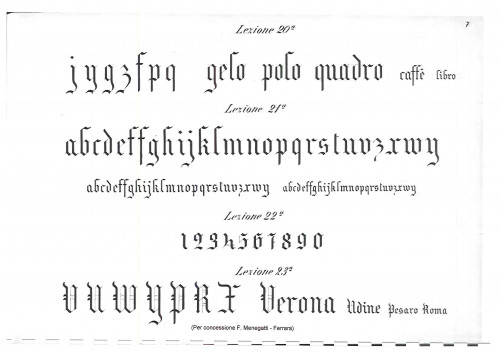 Lezione 20ª
7
j y g z f p q gelo polo quadro caffè libro
Lezione 21ª
abcdeffghijklmnopqrstuvzxwy
abcdeffghijklmnopqrstuvzxwy abcdeffghijklmnopqrstuvzxwy
Lezione 22ª
1 2 3 4 5 6 7 8 9 0
Lezione 23ª
V U W Y P R X Verona Udine Pesaro Roma
(Per concessione F. Menegatti - Ferrara)